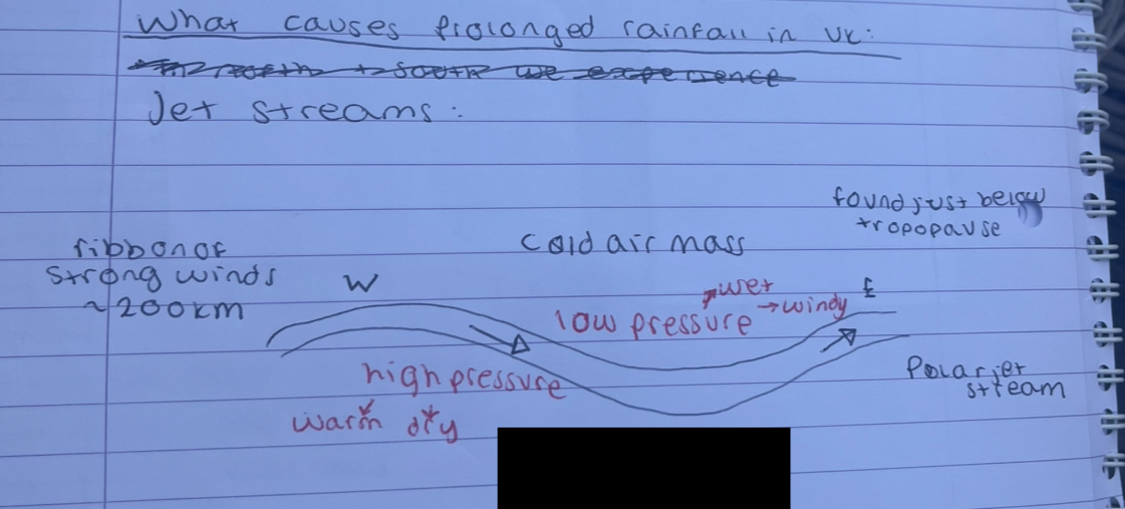 What causes prolonged rainfall in UK:
Jet streams:
found just below
tropopause
cold air mass
ribbon of
strong winds
~200km
W
E
wet
→windy
low pressure
high pressure
warm dry
Polar jet
stream